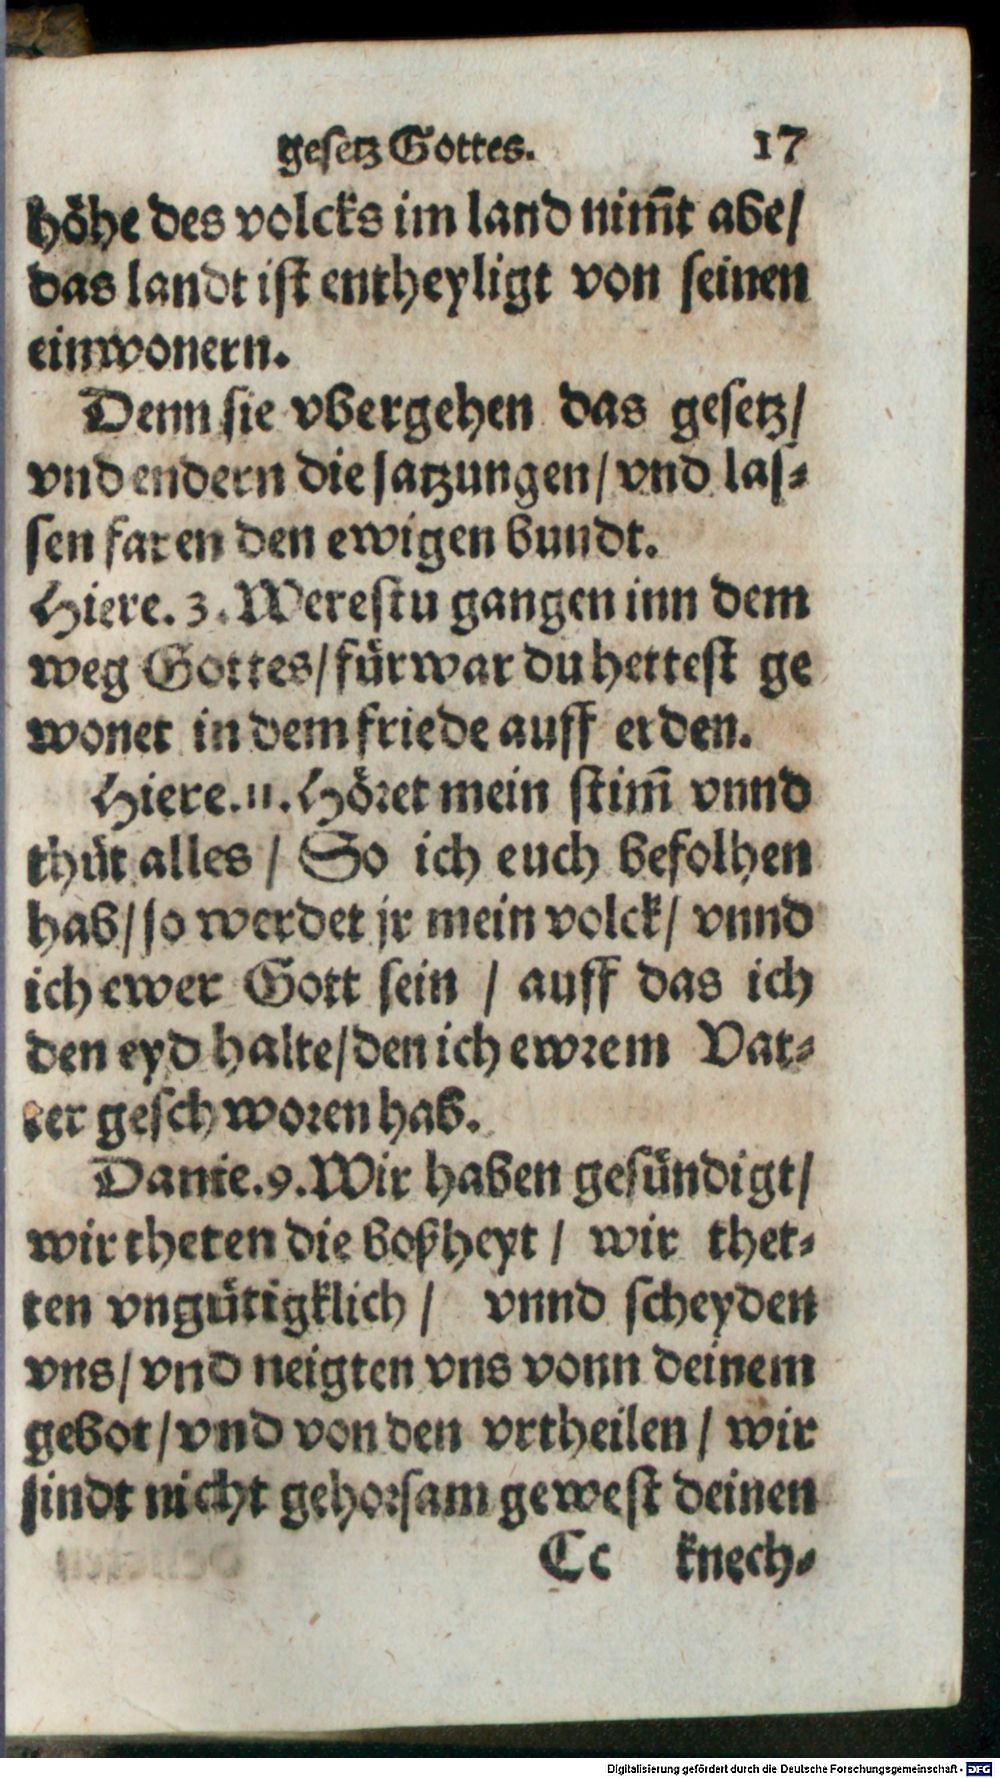 gesetz Gottes. 17
höhe des volcks im land nim̃t abe/
das landt ist entheyligt von seinen
einwonern.
Denn sie vbergehen das gesetz/
vnd endern die satzungen/ vnd las-
sen faren den ewigen bundt.
Hiere. 3. Werestu gangen inn dem
weg Gottes/ fürwar du hettest ge
wonet in dem friede auff erden.
Hiere. 11. Höret mein stim̃ vnnd
thüt alles / So ich euch befolhen
hab/ so werdet jr mein volck/ vnnd
ich ewer Gott sein / auff das ich
den eyd halte/ den ich ewrem Vat-
ter geschworen hab.
Danie. 9. Wir haben gesündigt/
wir theten die boßheyt / wir thet-
ten vngütigklich / vnnd scheyden
vns/ vnd neigten vns vonn deinem
gebot/ vnd von den vrtheilen/ wir
sindt nicht gehorsam gewest deinen
Cc knech-
Digitalisierung gefördert durch die Deutsche Forschungsgemeinschaft - DFG